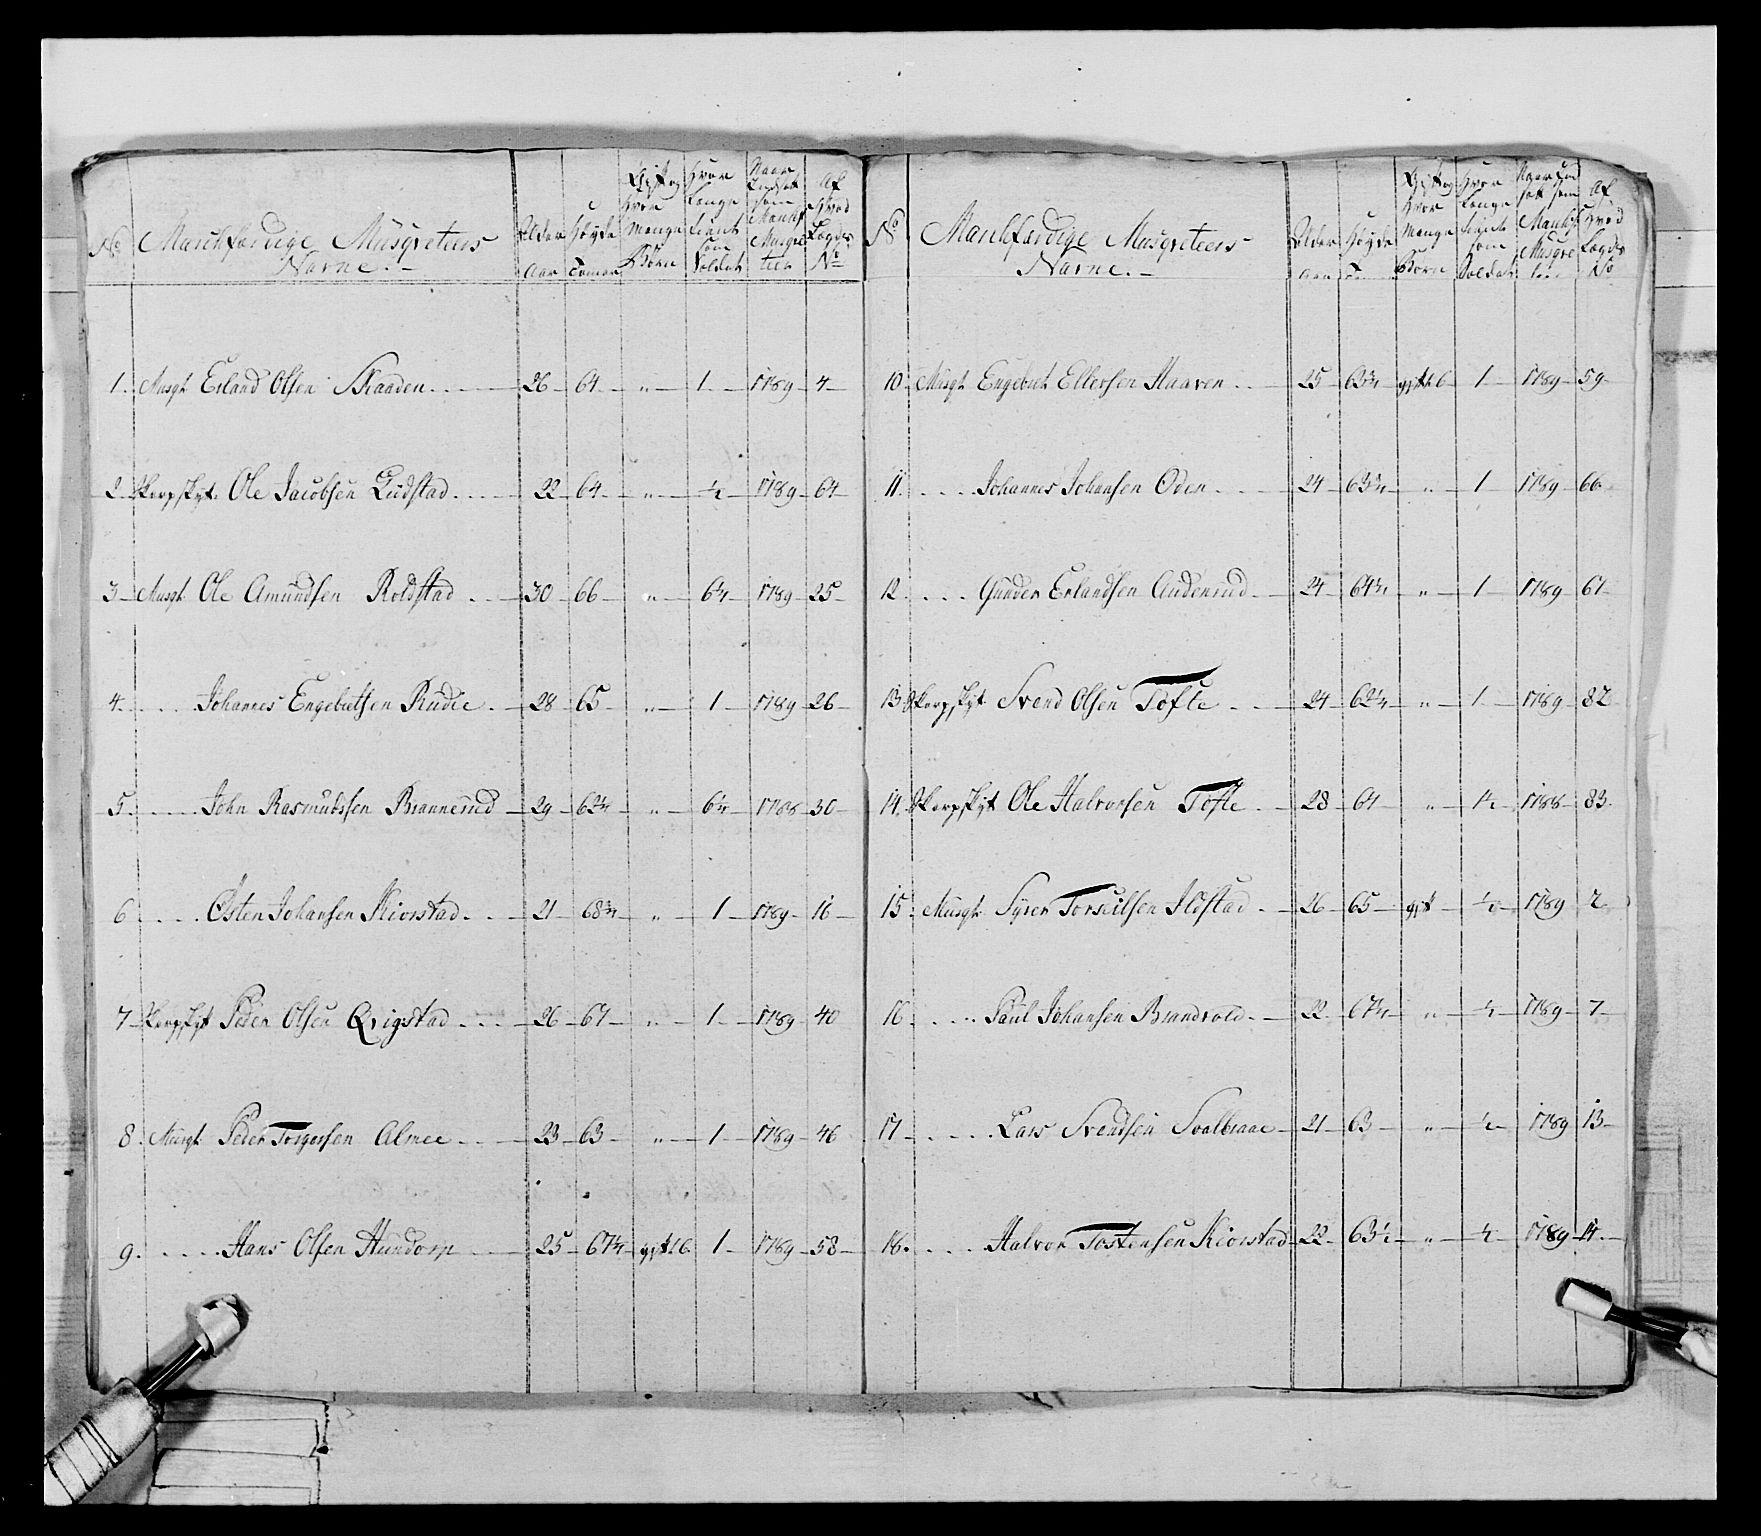 No Marchfærdige Musqveteers Navne.- Alder Aar Høyde Tomer Gift og hvor Mange Børn Hvor Længe tient som Soldat Naar Indsat som Marchf Musqveteer Af Hvad Lægds No
1. Musqt Erland Olsen Skaaden 26 64 " 1 1789 4
2 Skarpskyt Ole Jacobsen Ludstad 22 64 " ½ 1789 64
3 Musqt Ole Amundsen Roldstad 30 66 " 6¼ 1789 25
4. Johannes Engebretsen Rudie 28 65 " 1 1789 26
5. John Rasmussen Brannerud 29 62¼ " 6¼ 1788 30
6 Østen Johansen Kiorstad 21 68¾ " 1 1789 16
7 Skarpskyt Peder Olsen Qvigstad 26 67 " 1 1789 40
8. Musqt Peder Torgersen Almee 23 63 " 1 1789 46
9. Hans Olsen Hundorp 25 67¼ gift 1 b 1 1789 58
No Marchfærdige Musqveteers Navne.- Alder Aar Høyde Gift og hvor Mange Børn Hvor Længe tient som Soldat Naar Ind sat som Marchf Musqve Af Hvad Lægds No
10 Musqt Engebret Ellevsen Haaven 25 63¾ gift 1 b 1 1789 59
11. Johannes Johansen Oden 24 63¾ " 1 1789 66
12. Gunder Erlandsen Audenrud 24 64¾ " 1 1789 67
13 Skarpskyt Svend Olsen Tofte 24 62¼ " 1 1789 82
14. Skarpskyt Ole Halvorsen Tofte 28 64 " 1½ 1788 83
15. Musqt Syver Torkuilsen Ilstad 26 65 gift ½ 1789 2
16 Paul Johansen Brandvold 22 67¼ " ½ 1789 7
17 Lars Svendsen Svalbraae 21 63 " ½ 1789 13
18. Halvor Tostensen Kiorstad 22 63½ " ½ 1789 14